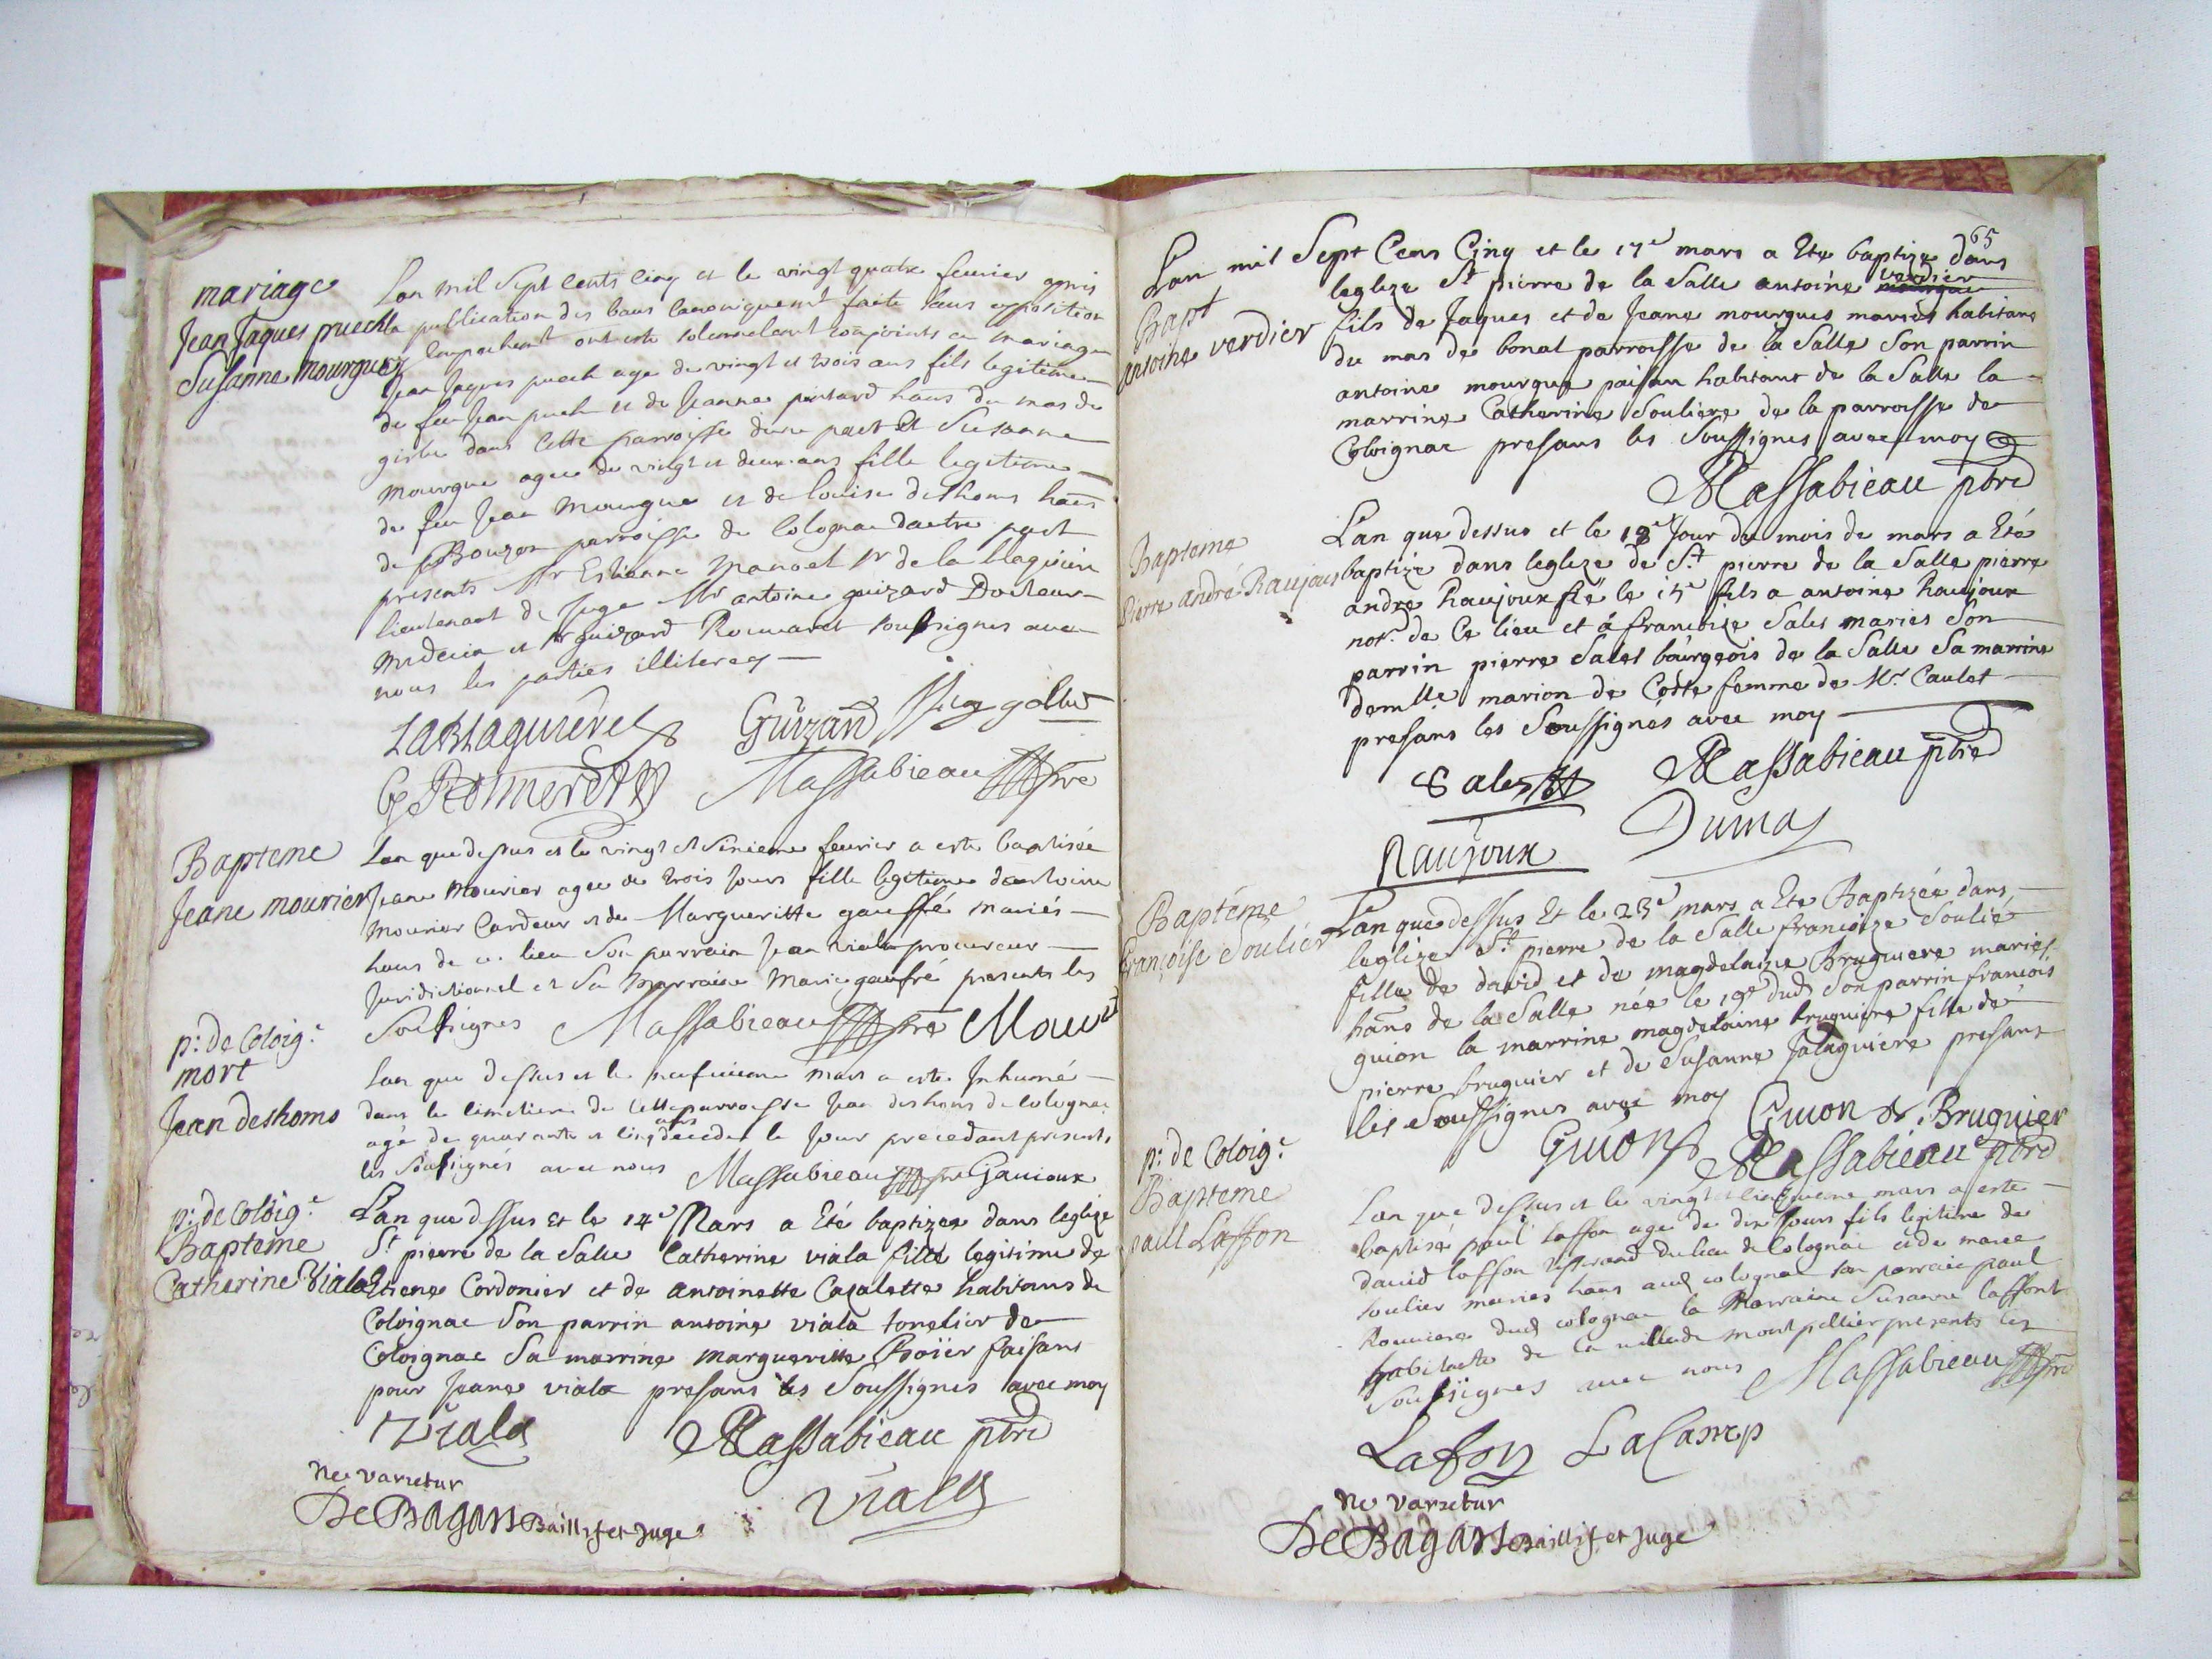 mariage
Jean Jaques puech
Susanne Mourgue
Lan mil Sept cents cinq et le vingt quatre feurier apres
la publication des bans canoniquement faite sans opposition
ny empechement ont este solemnelemt conjoints en mariage
Jean Jaques puech age de vingt et trois ans fils legitime
de feu Jean puech et de Jeanne pintard haus du mas de
dans Cette parroisse dune part Et Susanne
Mourgue agee de vingt et deux ans fille legitime
de feu Jean Mourgue et de louise deshoms haus
de Bouzon parroisse de Colognac dautre part
presents Mr Estienne Manoel Sr de la blaquiere
lieutenant de Juge Mr antoine guizard Docteur
Medecin et Sr guizard soussignes avec
nous les parties illiterees
Guizard
Massabieau ptre
Bapteme
Jeane mourier
Lan que dessus et le vingt et feurier a este baptisée
Jeane Mourier agee de trois Jours fille legitime dantoine
Mourier Cardeur et de Margueritte gauffré mariés
haus de ce lieu Son parrain Jean viala procureur
Juridictionel et Sa Marraine Marie gaufré presents les
Soussignes Massabieau ptre
p: de Coloig.e
mort
Jean deshoms
Lan que dessus et le neufuieme mars a este Inhumé
dans le Cimetiere de Cette parroisse Jean deshoms de Colognac
agé de quarante et cinq ans decede le Jour precedant presents
les Soussignés avec nous Massabieau ptre
p: de Coloig.e
Bapteme
Catherine Viala
Lan que dssus Et le 14e Mars a Eté baptizee dans leglize
St pierre de la Salle Catherine viala fille legitime de
Etiene Cordonier et de antoinette Cazalette habitans de
Coloignac Son parrin antoine viala tonelier de
Coloignac Sa marrine margueritte Boïer faisans
pour Jeane viala presans les Soussignes avec moy
Viala Massabieau ptre
Viala
Ne varietur
De BAGARS Baillif et Juge
65
Lan mil Sept Cens Cinq et le 17e mars a Ete baptize dans
Bapt
antoine verdier
leglize St pierre de la Salle antoine verdier
fils de Jaques et de Jeane mourgues mariés habitans
du mas de bonal parroisse de la Salle Son parrin
antoine mourgue paisan habitant de la Salle la
marrine Catherine Souliere de la parroisse de
Coloignac presans les Soussignes avec moy
Massabieau ptre
Bapteme
Pierre andré Raujous
Lan que dessus et le 18e Jour du mois de mars a Eté
baptizé dans leglize de St pierre de la Salle pierre
andre Raujoux né le 15e fils a antoine Raujoux
notr. de Ce lieu et á francoise Sales mariés Son
parrin pierre Sales bourgeois de la Salle Sa marrine
demlle marion de Coste femme de Mr Caulet
presans les Soussignés avec moy
Sales Massabieau ptre
Raujoux Dumas
Baptéme
Françoise Soulier
Lan que dessus Et le 23e mars a Ete Baptizée dans
leglize St pierre de la Salle francoize Soulié
fille de david et de magdelaine Bruguiere mariés
hans de la Salle née le 19e dud Son parrin francois
guion la marrine magdelaine bruguiere fille de
pierre bruguier et de Susanne Jalaguiere presans
les Soussignes avec moy Guion Bruguier
Guion Massabieau ptre
p: de Coloig.e
Bapteme
paul Laffon
Lan que dessus et le vingt et cinquieme mars a este
baptisé paul laffon age de dix Jours fils legitime de
dauid laffon du lieu de Colognac et de marie
soulier maries haus aud colognac son parrain paul
dud colognac la Marraine Susanne laffont
habitante de la ville de Montpellier presents les
Soussignes avec nous Massabieau ptre
Lafon LaCamp
Ne varietur
De BAGARS Baillif et Juge